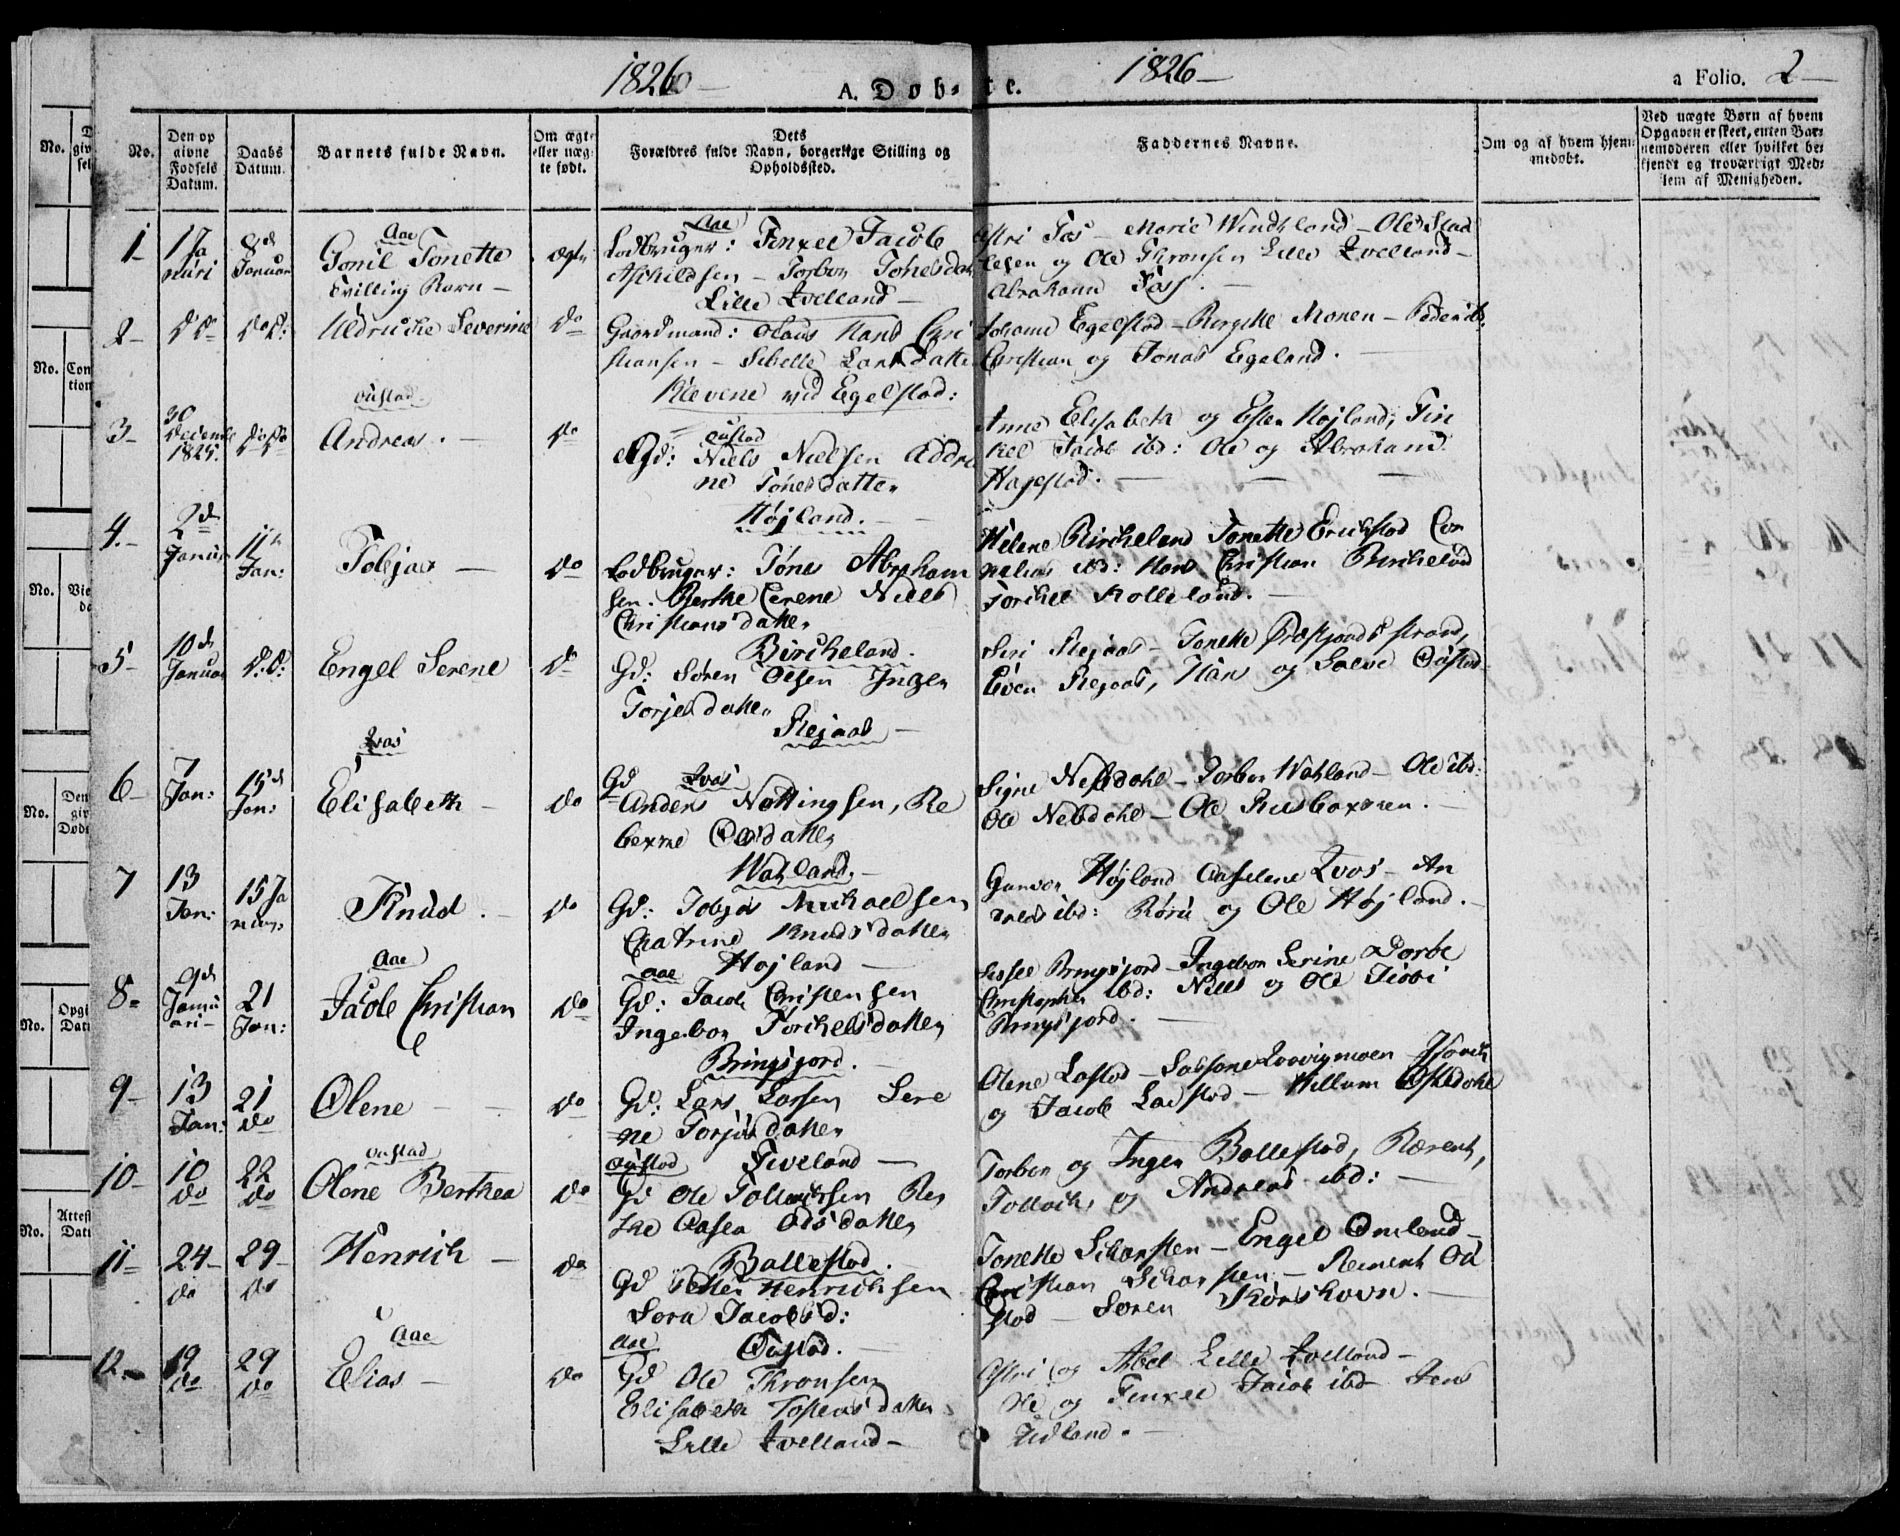 1826 —
A. Døb-
te.
1826 —
a Folio. 2 —
No.
Den op
givne
Fødsels
Datum.
Daabs
Datum.
Barnets fulde Navn.
Om ægte
eller uæg-
te født.
Dets
Forældres fulde Navn, borgerlige Stilling og
Opholdssted.
Faddernes Navne.
Om og af hvem hjem-
medøbt.
Ved uægte Børn af hvem
Opgaven er skeet, enten Bar-
nemoderen eller hvilket be-
kjendt og troværdigt Med-
lem af Menigheden.
1-
1 Ja
nuri
8d
Januar
Aae
Gonil Tonette
tvilling Barn —
ægte
Aae
Lodbruger: Tinxel Jacob
Askildsen — Torbor Tønesdat
Lille Qvelland —
Astri Fos — Marie Windsland — Ole Stad
lesen og Ole Thronsen Lille Qvelland —
Abraham Foss. —
2-
d Do
Do D:
Uldriche Severine
do
Gaardmand: Olaus Hans Chri
stiansen — Sibelle Larsdatter
Klevene ved Egelstad:
Johanne Egelstad — Birgitte Monen —
Christian og Jonas Egeland.
3-
30
Decembe
1825.
Oustad
Andreas. —
do
Oustad
Gd: Niels Nielsen Addri
ne Tønesdatter
Højland. —
Anne Elisabeth og Ester Højland, Tin
kel Jacob ibd: Ole og Abraham
Hagestad. —
4. -
2d
Januar
11te
Jan:
Tobjas —
do
Lodbruger: Tønes Abraham
sen. Berthe Cerene Niels
Christians datter
Bircheland.
Helene Bircheland Tonette Erichstad Cor
nelius ibd: Hans Christian Bircheland
Torchel Rolleland. —
5-
10de
Januar
D: D:
Engel Serene
do
Gd: Søren Olsen Inger
Torjesdatter
Rejaas —
Siri Rejaas — Tonette Præstjords strand,
Even Rejaas, Hans og Salve Oustad
6-
7
Jan:
15d
Jan:
Qvas
Elisabeth —
do
Gd Qvas
Anders Nottingsen, Re
becxne Olsdatter
Watland. —
Signe Nebdahl — Torbor Watland — Ole ibd:
Ole Nebdahl — Ole Rusboxeren. —
7
13
Jan:
15 Ja
nuar
Knud. —
do
Gd: Tobjas Michaelsen
Chatrine Knudsdatter
Højland —
Gunvor Højland Aaselene Qvas — An
ders ibd: Rørie og Ole Højland. —
8-
9d
Janu
ari —
21
Jan:
Aae
Jacob Christian
do
Aae
Gd: Jacob Christensen
Ingebor Torchelsdatter
Bringsjord. —
Sissel Bringsjord — Ingebor Serine Dorbe
Christopher ibd: Niels og Ole Tiobi
Bringsjord. —
9-
13
Jan:
21
do
Olene —
do
Gd: Lars Larsen Sere
ne Torjusdatter
Tiveland —
Olene Lastad — Sassane Lovigmoen
og Jacob Lastad — Willum Østedahl
10-
10
do
22
do
Oustad
Olene Berthea
do
Oustad
Gd Ole Tollachsen Ber
the Aasea Olsdatter
Ballestad. —
Torbor og Inger Ballestad, Berent,
Tollach og Andreas ibd: —
11-
24-
do
29-
do
Henrich —
do
Gd Peder Henrichsen
Sara Jacobsd:
Oustad. —
Tonette Scharsten — Engel Omland —
Christian Scharsten — Berent Od
stad — Søren Korshavn. —
12-
19
do
29
do
Aae
Elias —
do
Aae
Gd Ole Thronsen
Elisabeth Tostens datter
Lille Qvelland —
Astri og Abel Lille Qvelland —
Ole og Tinxel Jacob ibd Jens
Udland. —